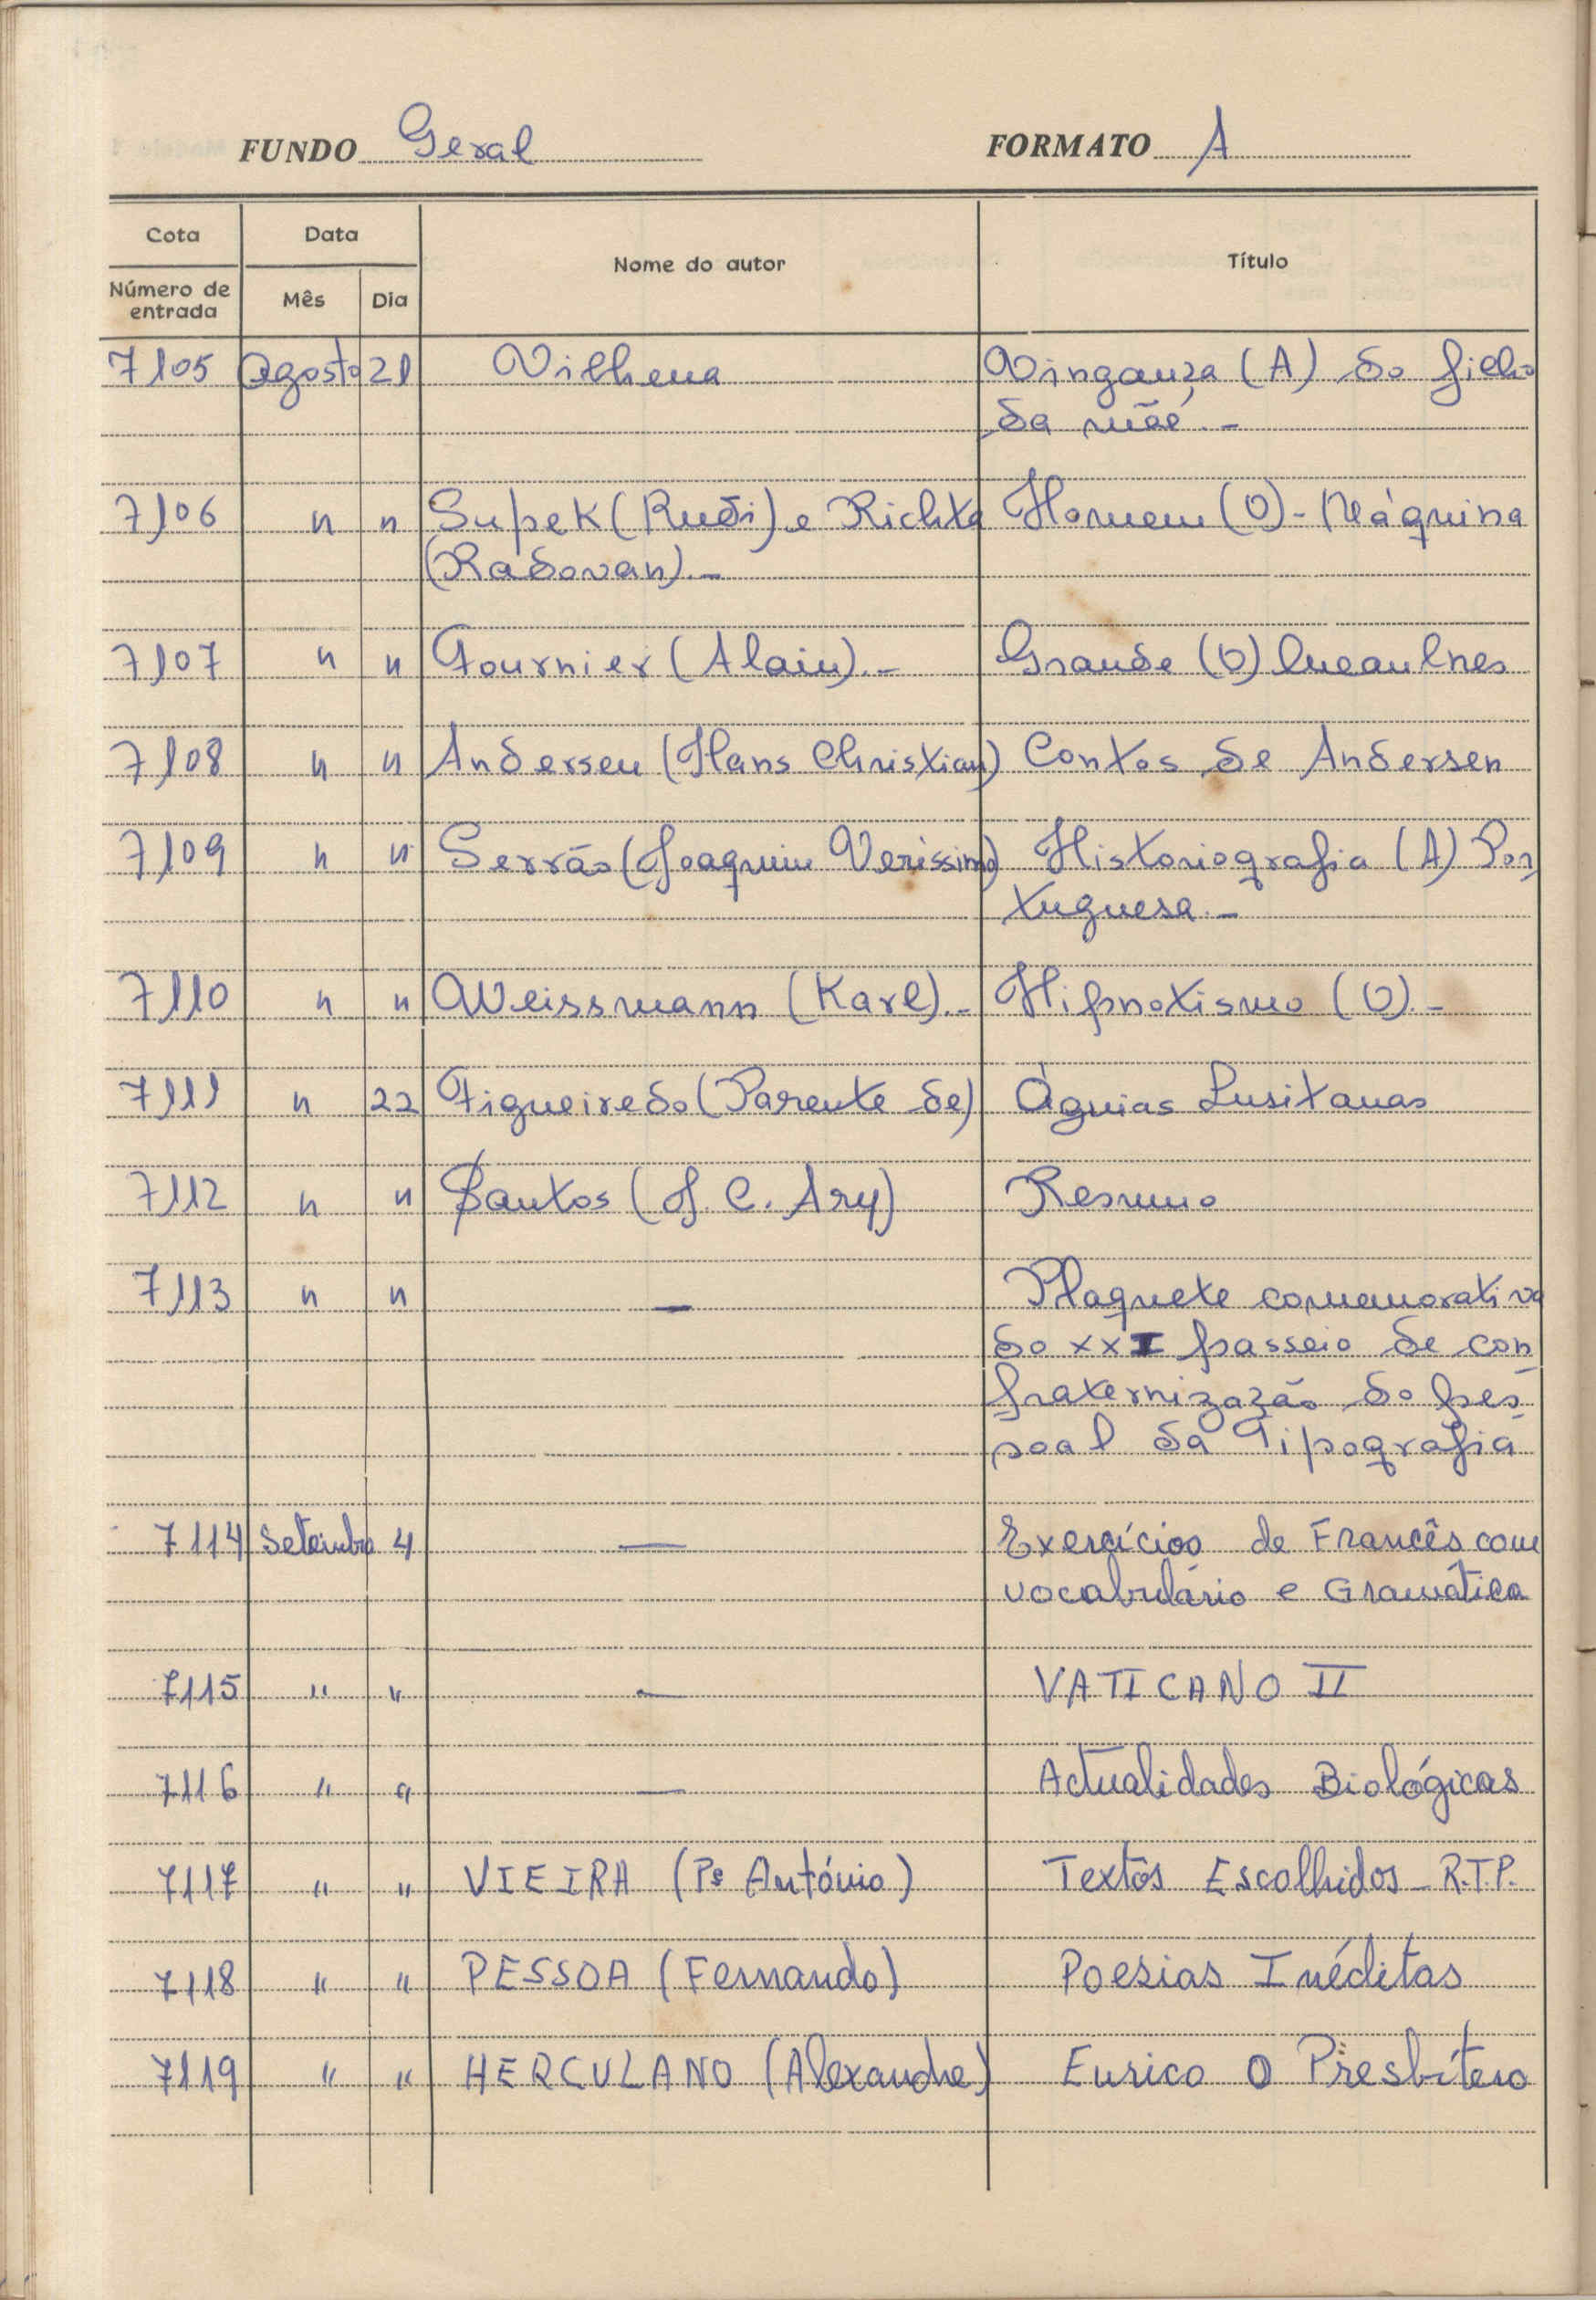 FUNDO Geral FORMATO A
Cota Data Nome do autor Título
Número de entrada Mês Dia
7105 Agosto 21 Vilhena Vingança (A) do filho
da mãe.-
7106 " " Supek (Rudi) e Richta Homem (O) - Máquina
(Radovan).-
7107 " " Fournier (Alain).- Grande (O) Meaulnes
7108 " " Andersen (Hans Christian) Contos de Andersen
7109 " " Serrão (Joaquim Veríssimo) Historiografia (A) Por-
tuguesa.-
7110 " " Weissmann (Karl).- Hipnotismo (O).-
7111 " 22 Figueiredo (Parente de) Águias Lusitanas
7112 " " Santos (J. C. Ary) Resumo
7113 " " — Plaquete comemorativa
do XXI passeio de con-
fraternização do pes-
soal da Tipografia
7114 Setembro 4 — Exercícios de Francês com
vocabulário e Gramática
7115 " " — VATICANO II
7116 " " — Actualidades Biológicas
7117 " " VIEIRA (Pe António) Textos Escolhidos - R.T.P.
7118 " " PESSOA (Fernando) Poesias Inéditas
7119 " " HERCULANO (Alexandre) Eurico O Presbítero